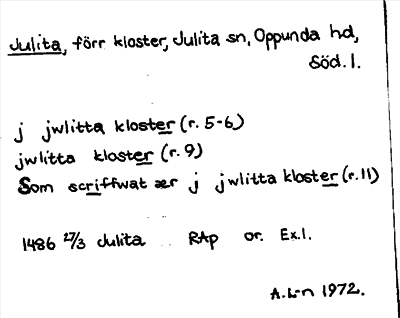 Julita, förr kloster, Julita sn, Oppunda hd,
Söd. l.
j jwlitta kloster (r. 5-6)
jwlitta kloster (r. 9)
Som scriffwat ær j jwlitta kloster (r. 11)
1486 27/3 Julita RAp or. Ex. 1.
A. L-n 1972.